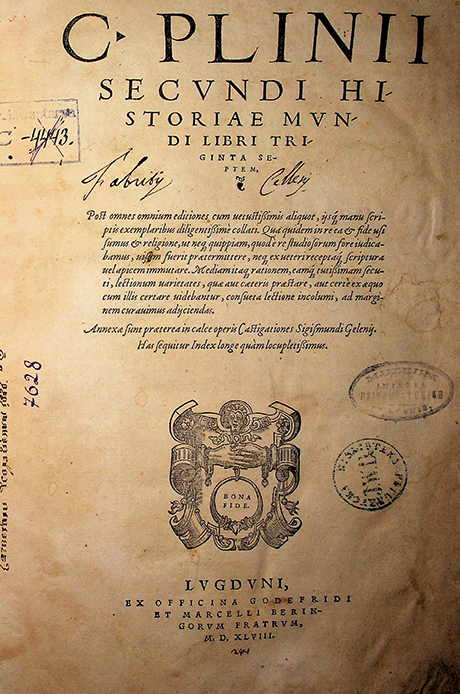 C. PLINII
SECVNDI HI-
STORIAE MVN-
DI LIBRI TRI-
GINTA SE-
PTEM,
C -4443.
Post omnes omnium editiones, cum vetustissimis aliquot, ijsq; manu scri-
ptis exemplaribus diligentissime collati. Qua quidem in re ea & fide usi
sumus & religione, ut neq; quippiam, quod è re studiosorum fore iudica-
bamus, uisum fuerit prætermittere, neq; ex ueteri receptaq; scriptura
vel apicem immutare. Mediam itaq; rationem, eamq; tutissimam secu-
ti, lectionum varietates, quæ aut cæteris præstare, aut certè ex æquo
cum illis certare videbantur, consueta lectione incolumi, ad margi-
nem curauimus adijciendas.
Annexæ sunt præterea in calce operis Castigationes Sigismundi Gelenij.
Has sequitur Index longe quàm locupletissimus.
7628
BONA
FIDE.
LVGDVNI,
EX OFFICINA GODEFRIDI
ET MARCELLI BERIN-
GORVM FRATRVM,
M. D. XLVIII.